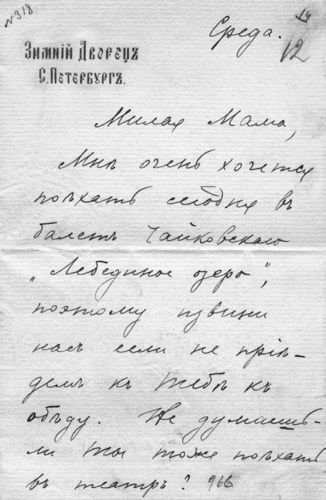 №318
19
Среда. 12
Зимній Дворецъ
С. Петербургъ.
Милая Мама,
Мнѣ очень хочется
поѣхать сегодня въ
балетъ Чайковскаго
„Лебединое озеро",
поэтому извини
насъ если не пріѣ-
демъ къ тебѣ къ
обѣду. Не думаешь-
ли ты тоже поѣхать
въ театръ? 966